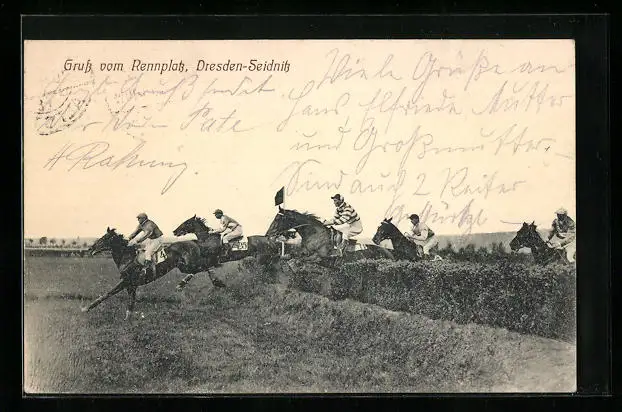 Gruß vom Rennplatz, Dresden-Seidnitz
Viele Grüße an
Hans Elfriede Mutter
und Großmutter.
Sind auch 2 Reiter
gestürtzt
sendet
Pate
4